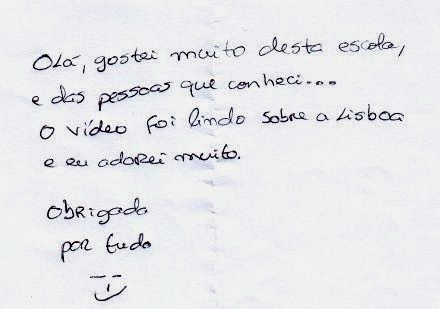 Olá, gostei muito desta escola,
e das pessoas que conheci...
O vídeo foi lindo sobre a Lisboa
e eu adorei muito.
Obrigada
por tudo